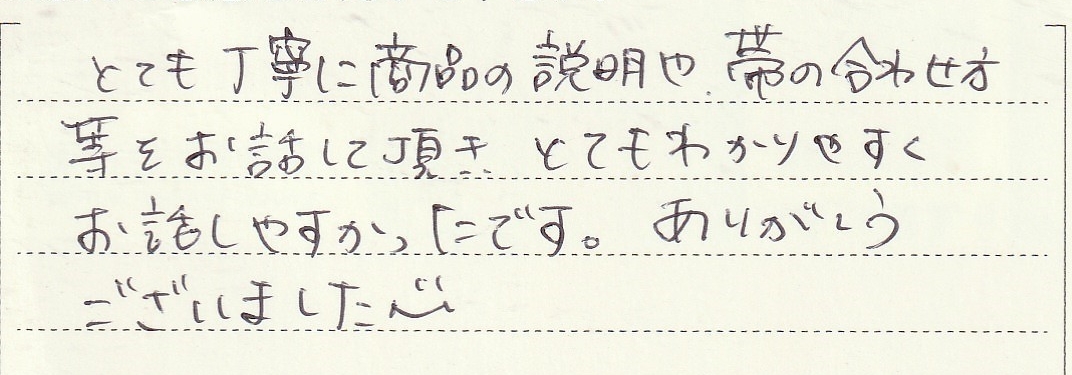 とても丁寧に商品の説明や帯の合わせ方
等をお話して頂き とてもわかりやすく
お話しやすかったです。ありがとう
ございました